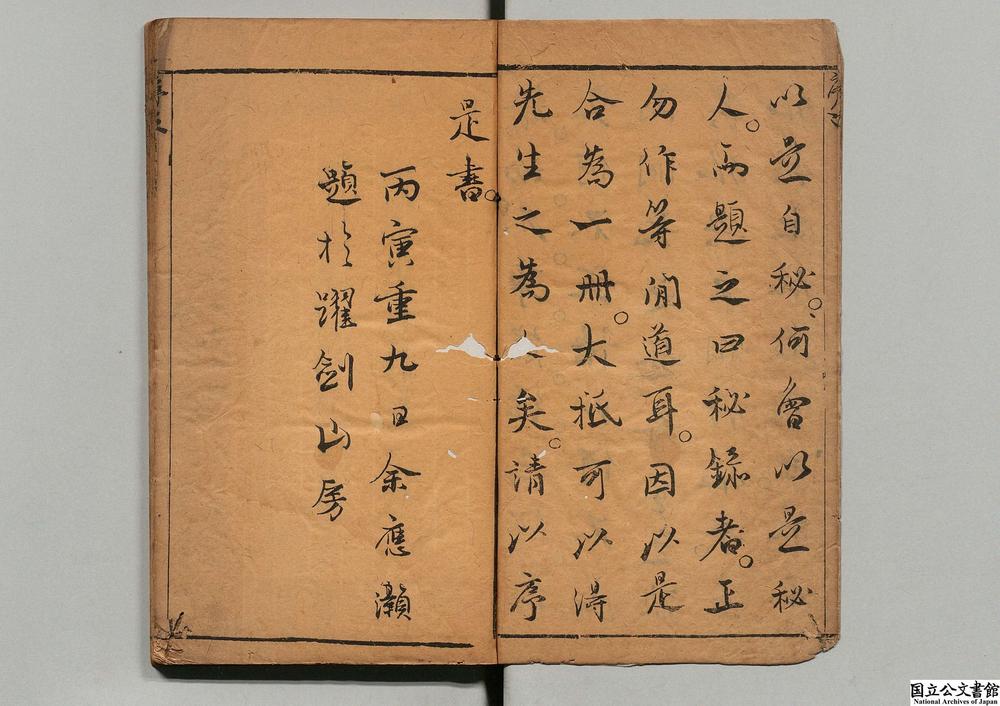 以是自秘。何會以是秘
人。而題之曰秘錄者。正
勿作等閒道耳。因以是
合為一冊。大抵可以得
先生之為 矣。請以序
是書。
丙寅重九日余應灝
題於躍劍山房
国立公文書館
National Archives of Japan